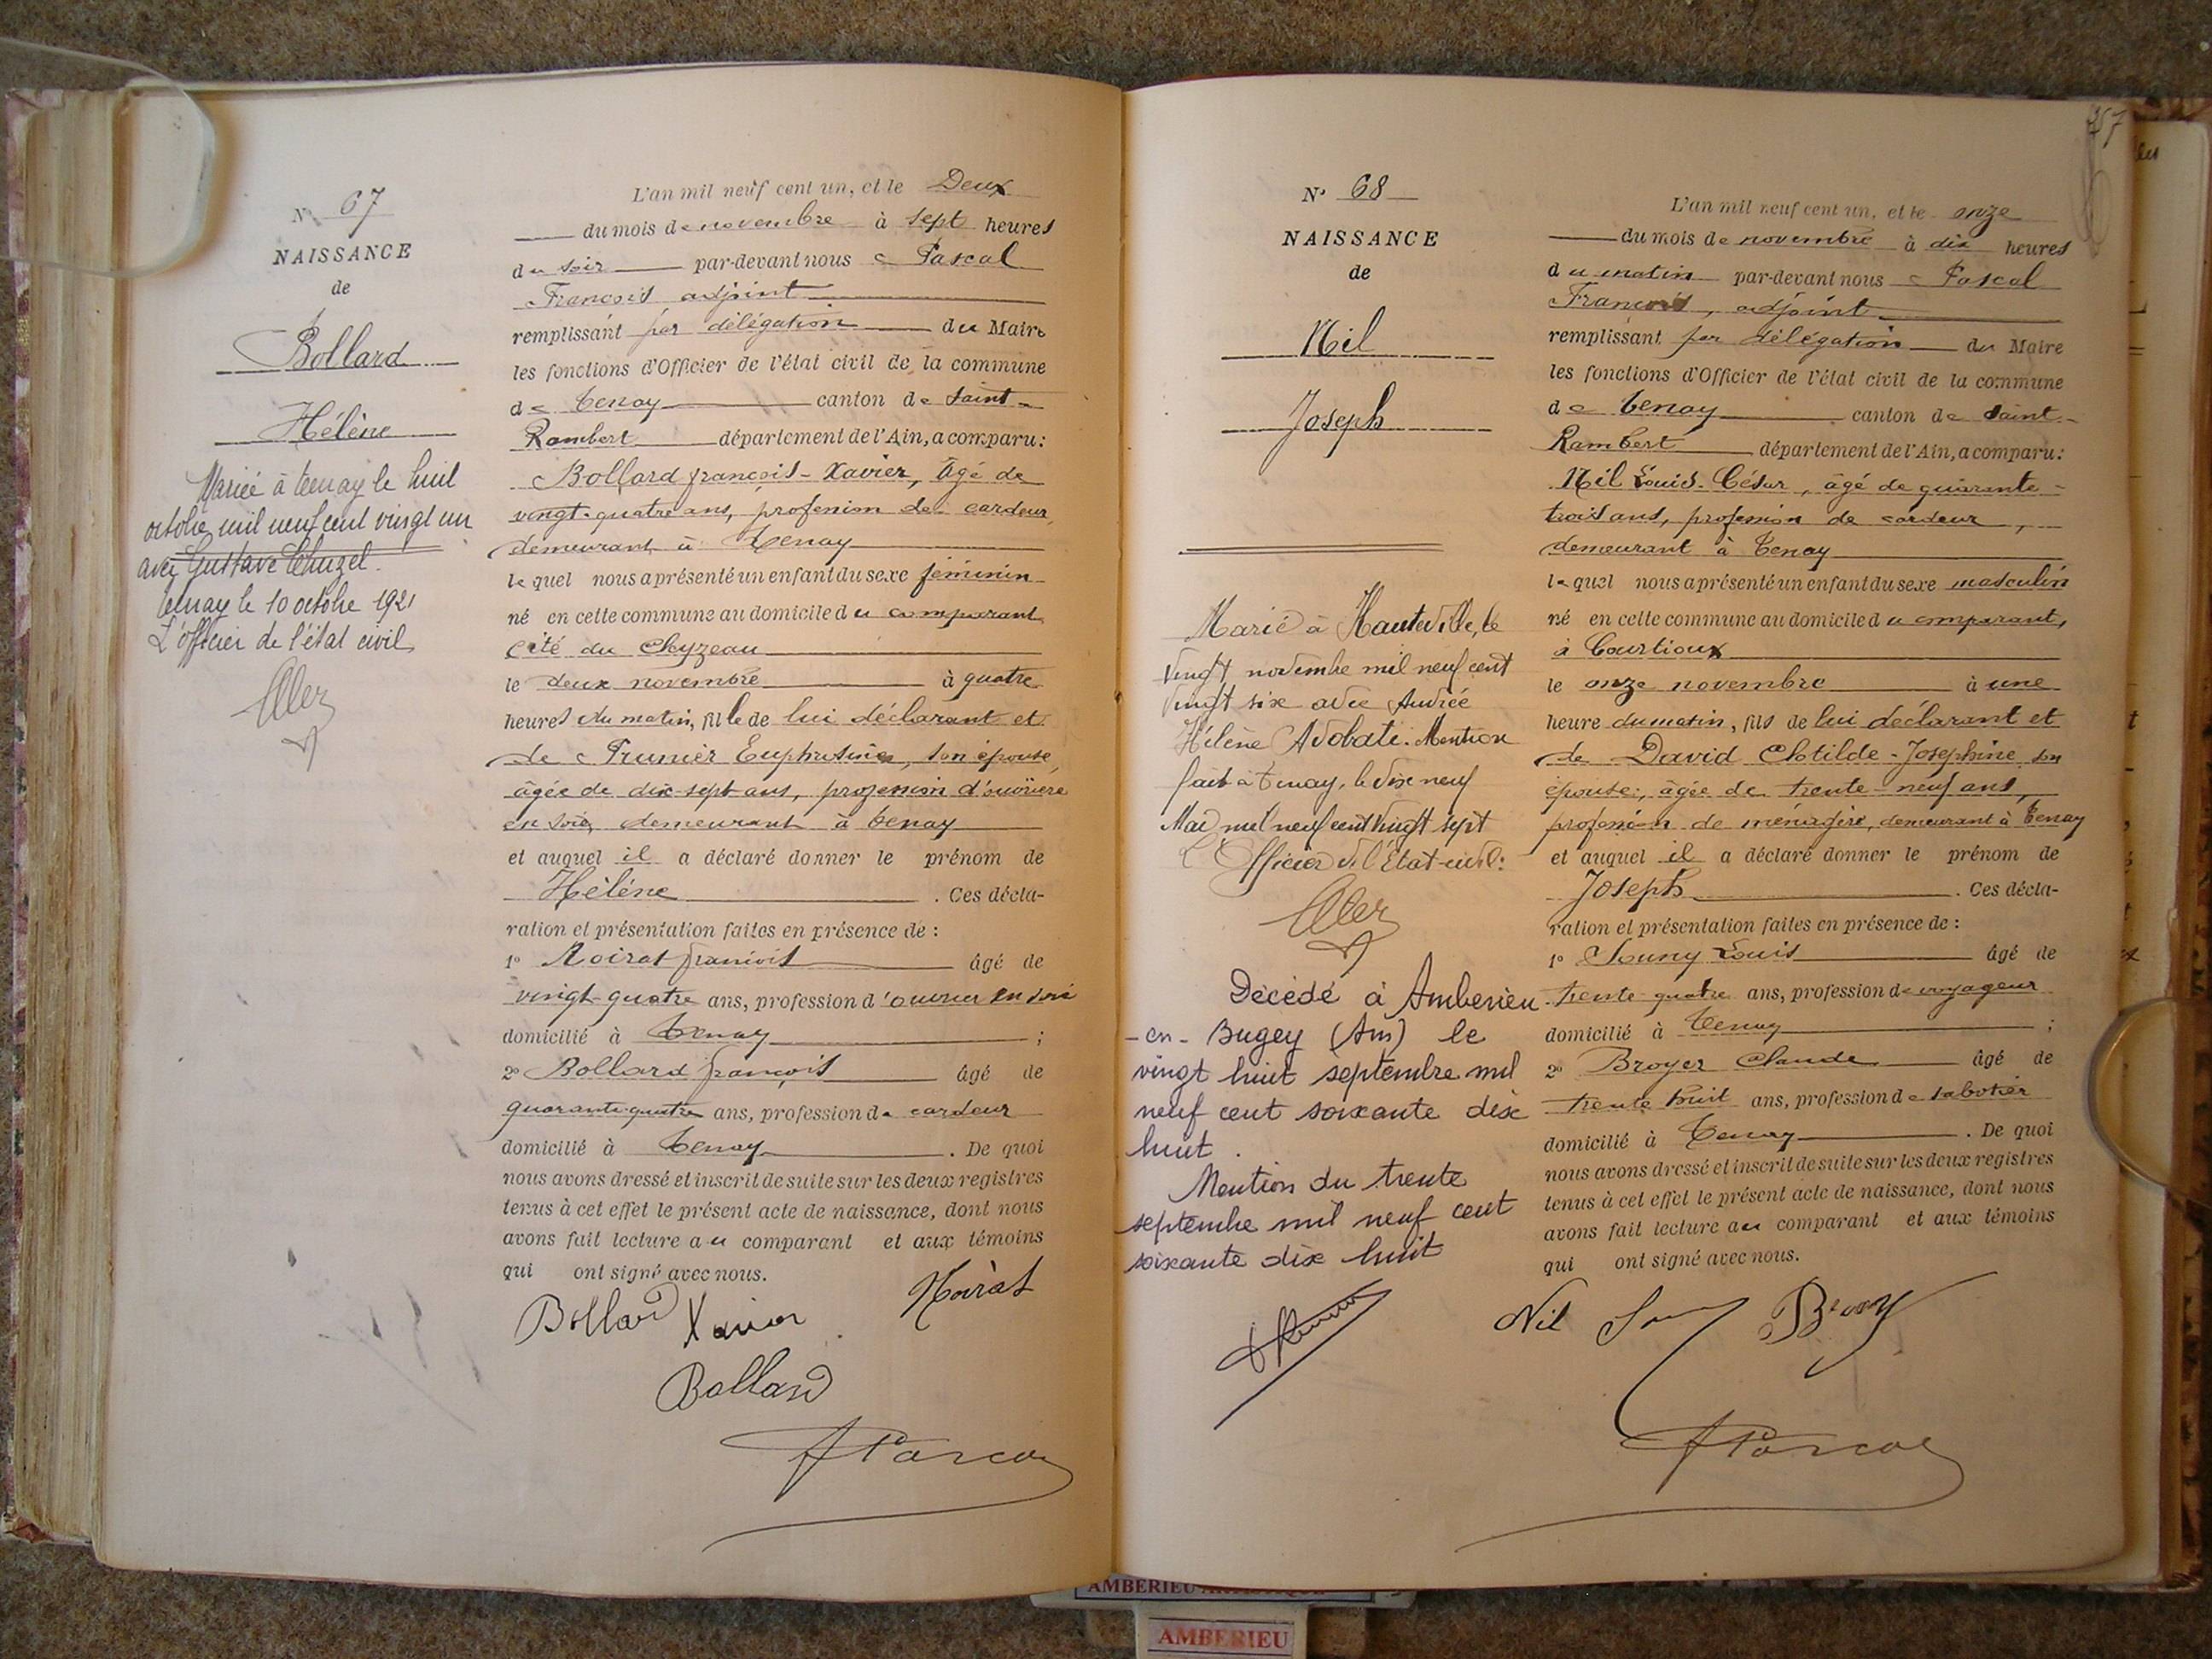 N° 67
NAISSANCE
de
Bollard
Hélène
Mariée à Tenay le huit
octobre mil neuf cent vingt un
avec Gustave Chuzel.
Tenay le 10 octobre 1921
L'officier de l'état civil
L'an mil neuf cent un, et le Deux
du mois de novembre à sept heures
du soir par-devant nous Pascal
François adjoint
remplissant par délégation du Maire
les fonctions d'Officier de l'état civil de la commune
de Tenay canton de Saint-
Rambert département de l'Ain, a comparu:
Bollard françois-Xavier, âgé de
vingt-quatre ans, profession de cardeur,
demeurant à Tenay
lequel nous a présenté un enfant du sexe féminin
né en cette commune au domicile du comparant
cité du Chyzeau
le deux novembre à quatre
heures du matin, fille de lui déclarant et
de Prunier Euphrosine, son épouse,
âgée de dix-sept ans, profession d'ouvrière
en soie, demeurant à Tenay
et auquel il a déclaré donner le prénom de
Hélène . Ces décla-
ration et présentation faites en présence de :
1° Noirat françois âgé de
vingt-quatre ans, profession d'ouvrier en soie
domicilié à Tenay ;
2° Bollard françois âgé de
quarante-quatre ans, profession de cardeur
domicilié à Tenay . De quoi
nous avons dressé et inscrit de suite sur les deux registres
tenus à cet effet le présent acte de naissance, dont nous
avons fait lecture au comparant et aux témoins
qui ont signé avec nous.
Bollard Xavier Noirat
Bollard
Pascal
57
N° 68
NAISSANCE
de
Nil
Joseph
Marié à Hauteville, le
vingt novembre mil neuf cent
vingt six avec Andrée
Hélène Advobate. Mention
fait à Tenay, le dix neuf
Mai mil neuf cent vingt sept
L'Officier de l'État-civil:
Décédé à Amberieu
-en- Bugey (Ain) le
vingt huit septembre mil
neuf cent soixante dix
huit.
Mention du trente
septembre mil neuf cent
soixante dix huit
L'an mil neuf cent un, et le onze
du mois de novembre à dix heures
du matin par-devant nous Pascal
François, adjoint
remplissant par délégation du Maire
les fonctions d'Officier de l'état civil de la commune
de Tenay canton de Saint-
Rambert département de l'Ain, a comparu:
Nil Louis-César, âgé de quarante-
trois ans, profession de cardeur,
demeurant à Tenay
lequel nous a présenté un enfant du sexe masculin
né en cette commune au domicile du comparant,
à Courlioux
le onze novembre à une
heure du matin, fils de lui déclarant et
de David Clotilde-Joséphine son
épouse, âgée de trente-neuf ans,
profession de ménagère, demeurant à Tenay
et auquel il a déclaré donner le prénom de
Joseph . Ces décla-
ration et présentation faites en présence de :
1° Souny Louis âgé de
trente-quatre ans, profession de voyageur
domicilié à Tenay ;
2° Broyer Claude âgé de
trente huit ans, profession de sabotier
domicilié à Tenay . De quoi
nous avons dressé et inscrit de suite sur les deux registres
tenus à cet effet le présent acte de naissance, dont nous
avons fait lecture au comparant et aux témoins
qui ont signé avec nous.
Nil
Pascal
AMBERIEU
AMBERIEU